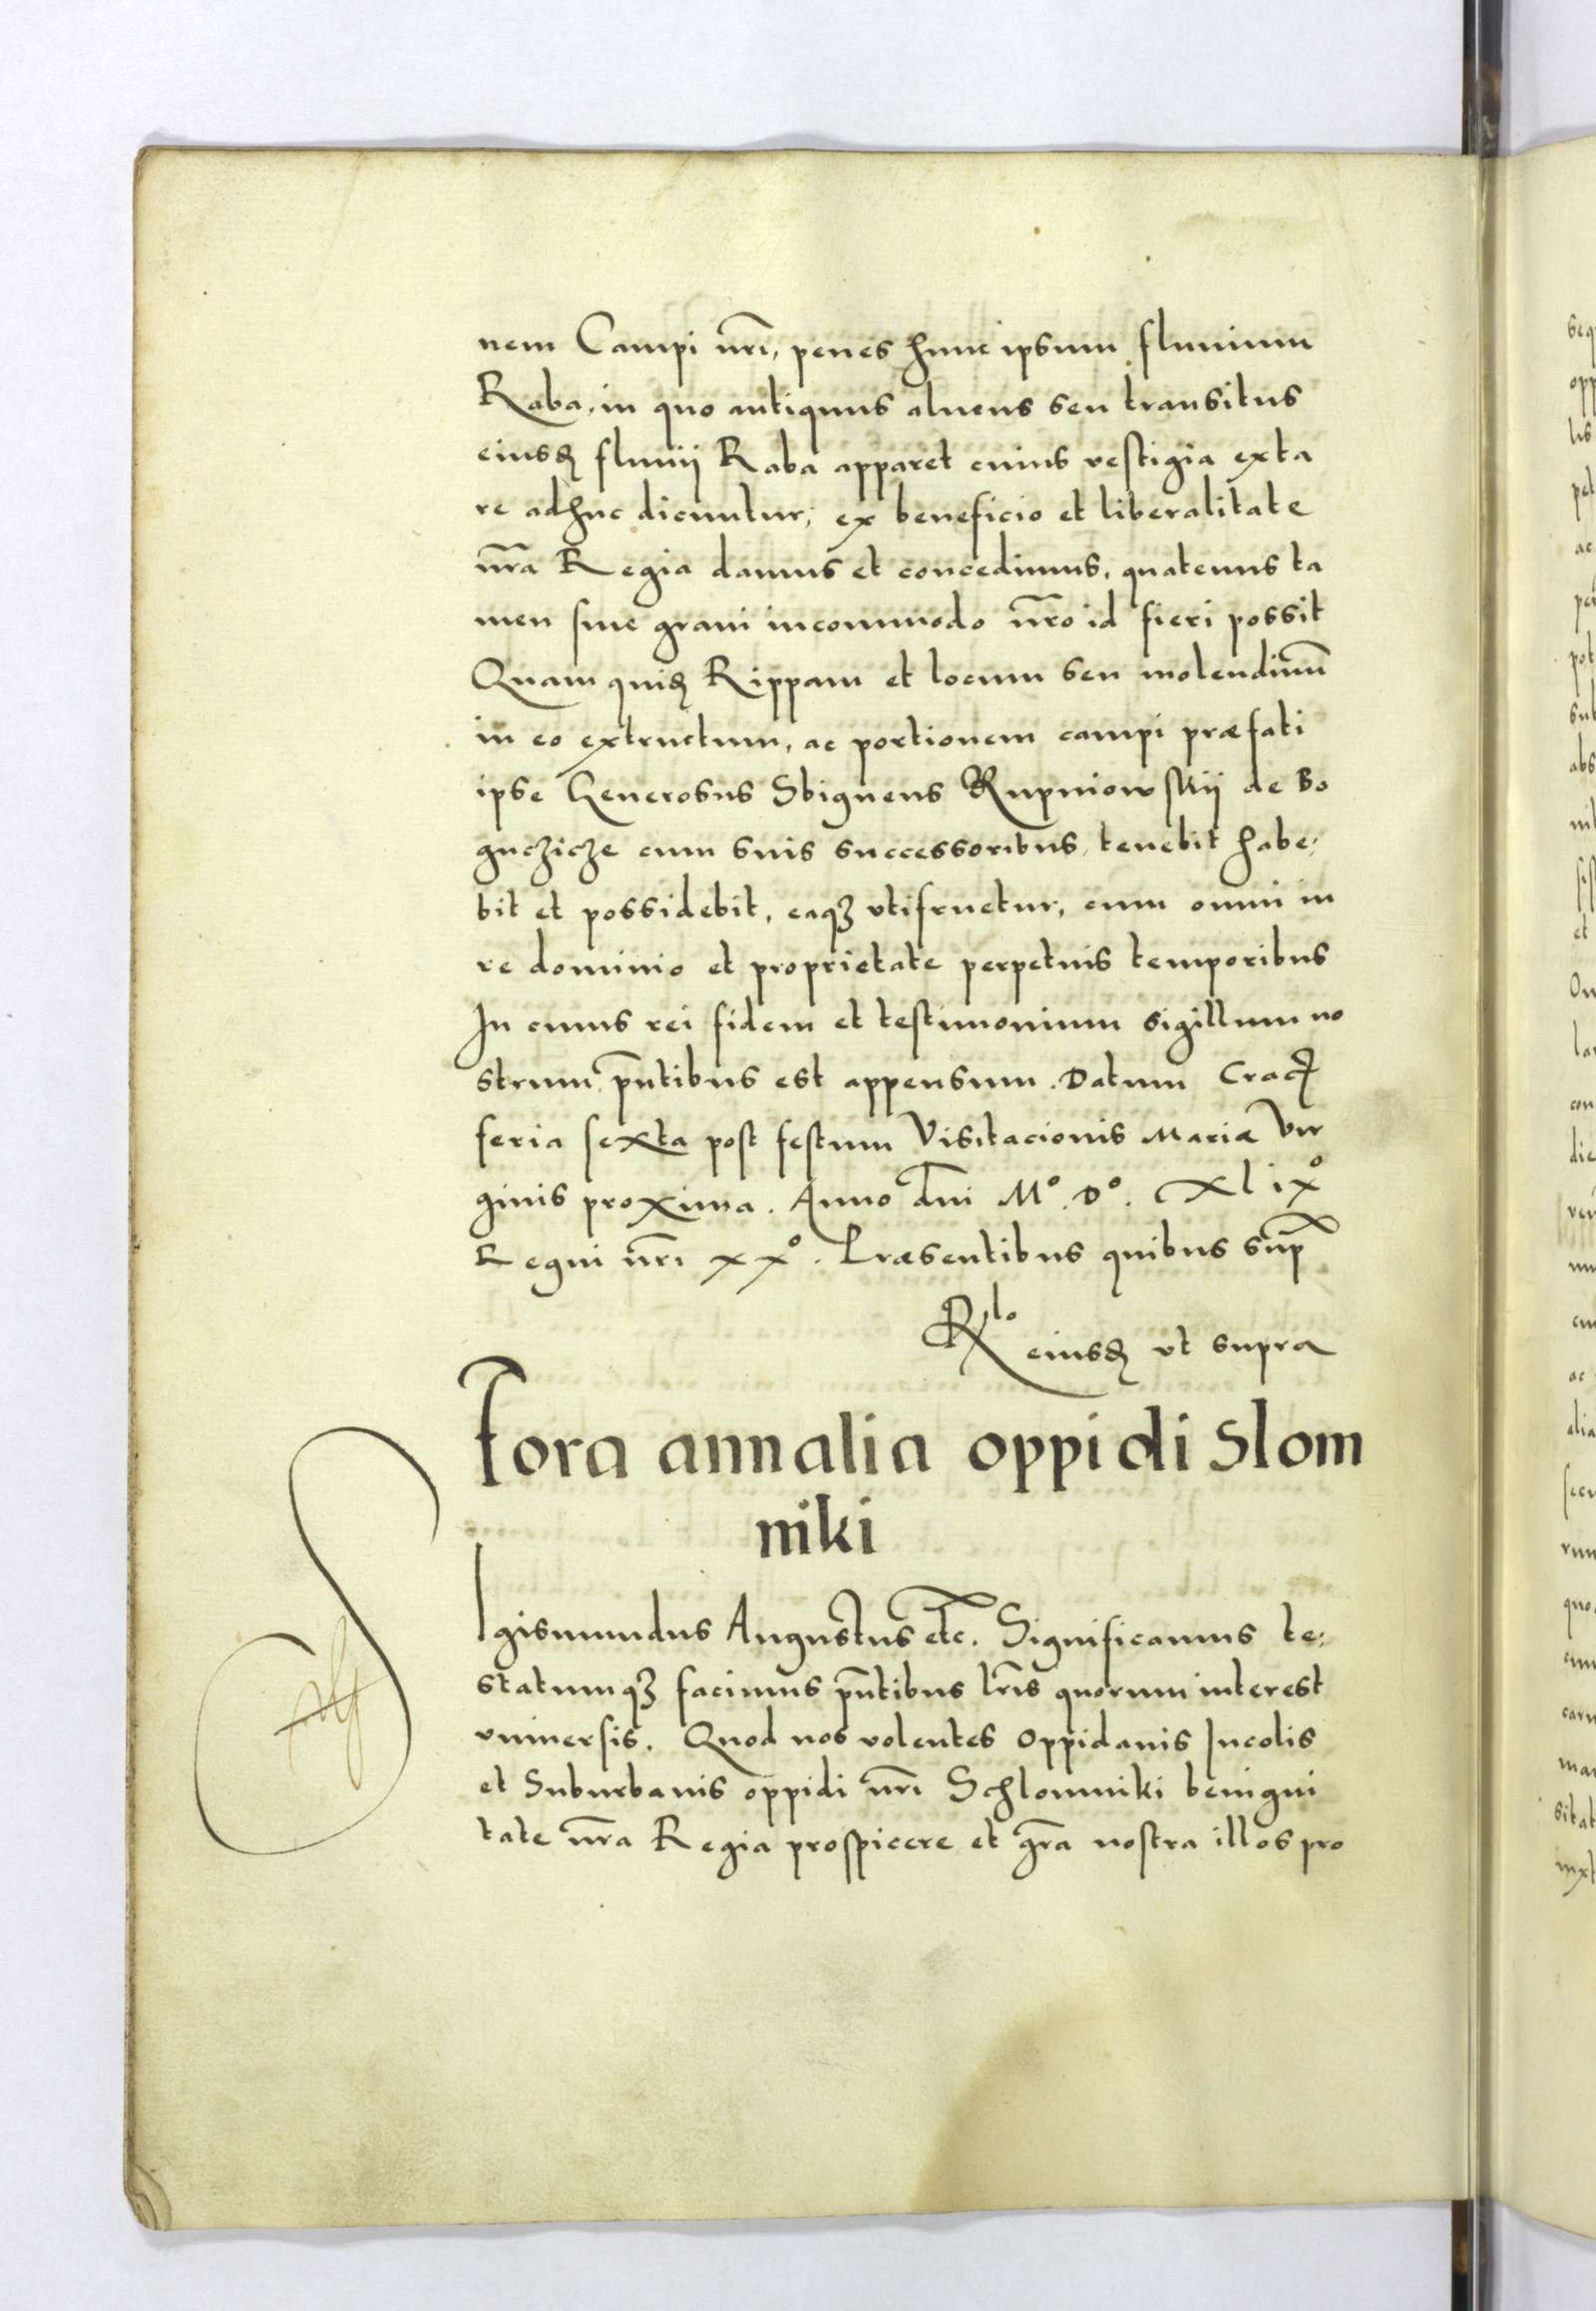 nem Campi nr̃i, penes hunc ipsum fluuium
Raba, in quo antiquus alueus seu transitus
eiusdẽ fluuij Raba apparet cuius vestigia exta
re adhuc dicuntur, ex beneficio et liberalitate
nr̃a Regia damus et concedimus, quatenus ta
men sine graui incommodo nr̃o id fieri possit
Quam quidẽ Rippam et locum seu molendinũ
in eo extructum, ac portionem campi præfati
ipse Generosus Sbigneus Rupniowskij de Bo
guczicze cum suis successoribus, tenebit habe,
bit et possidebit, eaqꝫ vtifruetur, cum omni iu
re dominio et proprietate perpetuis temporibus
In cuius rei fidem et testimonium sigillum no
strum pñtibus est appensum. Datum Cracoꝟ
feria sexta post festum Visitacionis Mariæ Vir
ginis proxima. Anno dñi Mº. Dº. XLixº
Regni nr̃i xxº. Præsentibus quibus sup̃
Rlo eiusdẽ vt supra
Fora annalia oppidi Slom
niki
SIgismundus Augustus etc̃. Significamus te,
statumqꝫ facimus pñtibus lr̃is quorum interest
vniuersis. Quod nos volentes Oppidanis Incolis
et Suburbanis oppidi nr̃i Schlomniki benigni
tate nr̃a Regia prospicere et gr̃a nostra illos pro